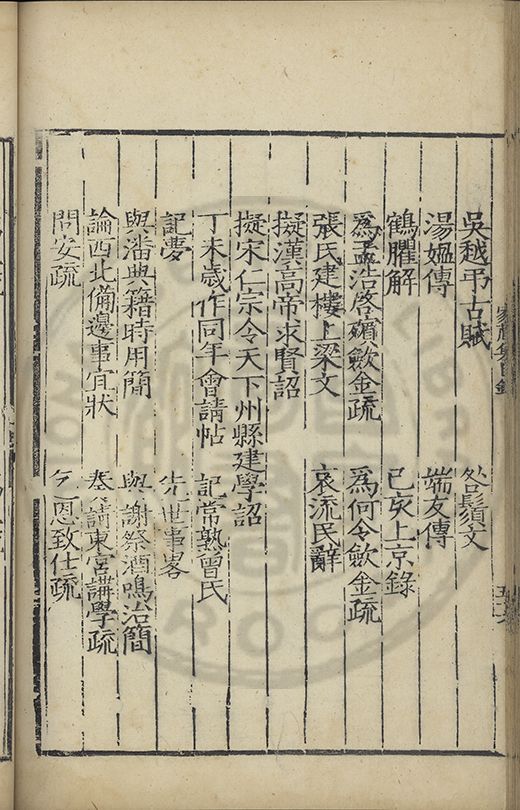 吳越弔古賦 咎鬚文
湯媼傳 端友傳
鶴臞解 己亥上京錄
爲孟浩啓殯斂金疏 爲何令斂金疏
張氏建樓上梁文 哀流民辭
擬漢高帝求賢詔
擬宋仁宗令天下州縣建學詔
丁未歲作同年會請帖 記常熟曾氏
記夢 先世事畧
與潘典籍時用簡 與謝祭酒鳴治簡
論西北備邊事宜狀 奏請東宮講學疏
問安疏 乞恩致仕疏
家藏集目錄